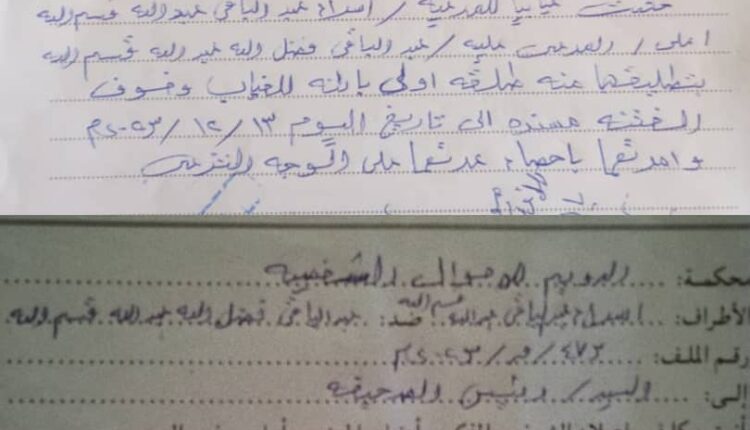 حكمت غيابياً للمدعية / اسراء عبد الباقي عبد الله قسم الله
على / المدعى عليه / عبد الباقي فضل الله عبد الله قسم الله
بتطليقها منه طلقة اولى بائنة للغياب وخوف
الفتنة مسنده الى تاريخ اليوم ١٣ / ١٢ / ٢٠٢٣م
وامرتها باحصاء عدتها على الوجه الشرعى
محكمة: الدويم للاحوال الشخصية
الأطراف: اسراء عبد الباقي عبد الله قسم الله ضد: عبد الباقي فضل الله عبد الله قسم الله
رقم الملف: ٤٧٢ / / ٢٠٢٣م
إلى: السيد / رئيس الصحيفه